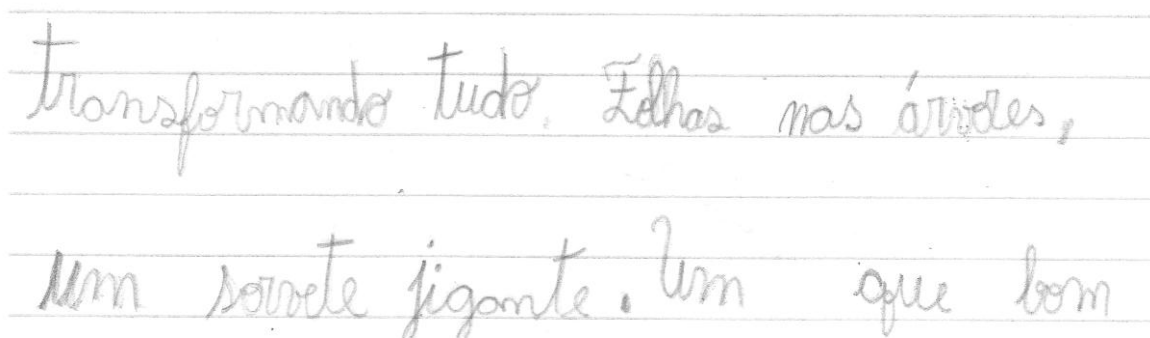 transformando tudo. Folhas nas árvores,
um sorvete jigante. Um que bom